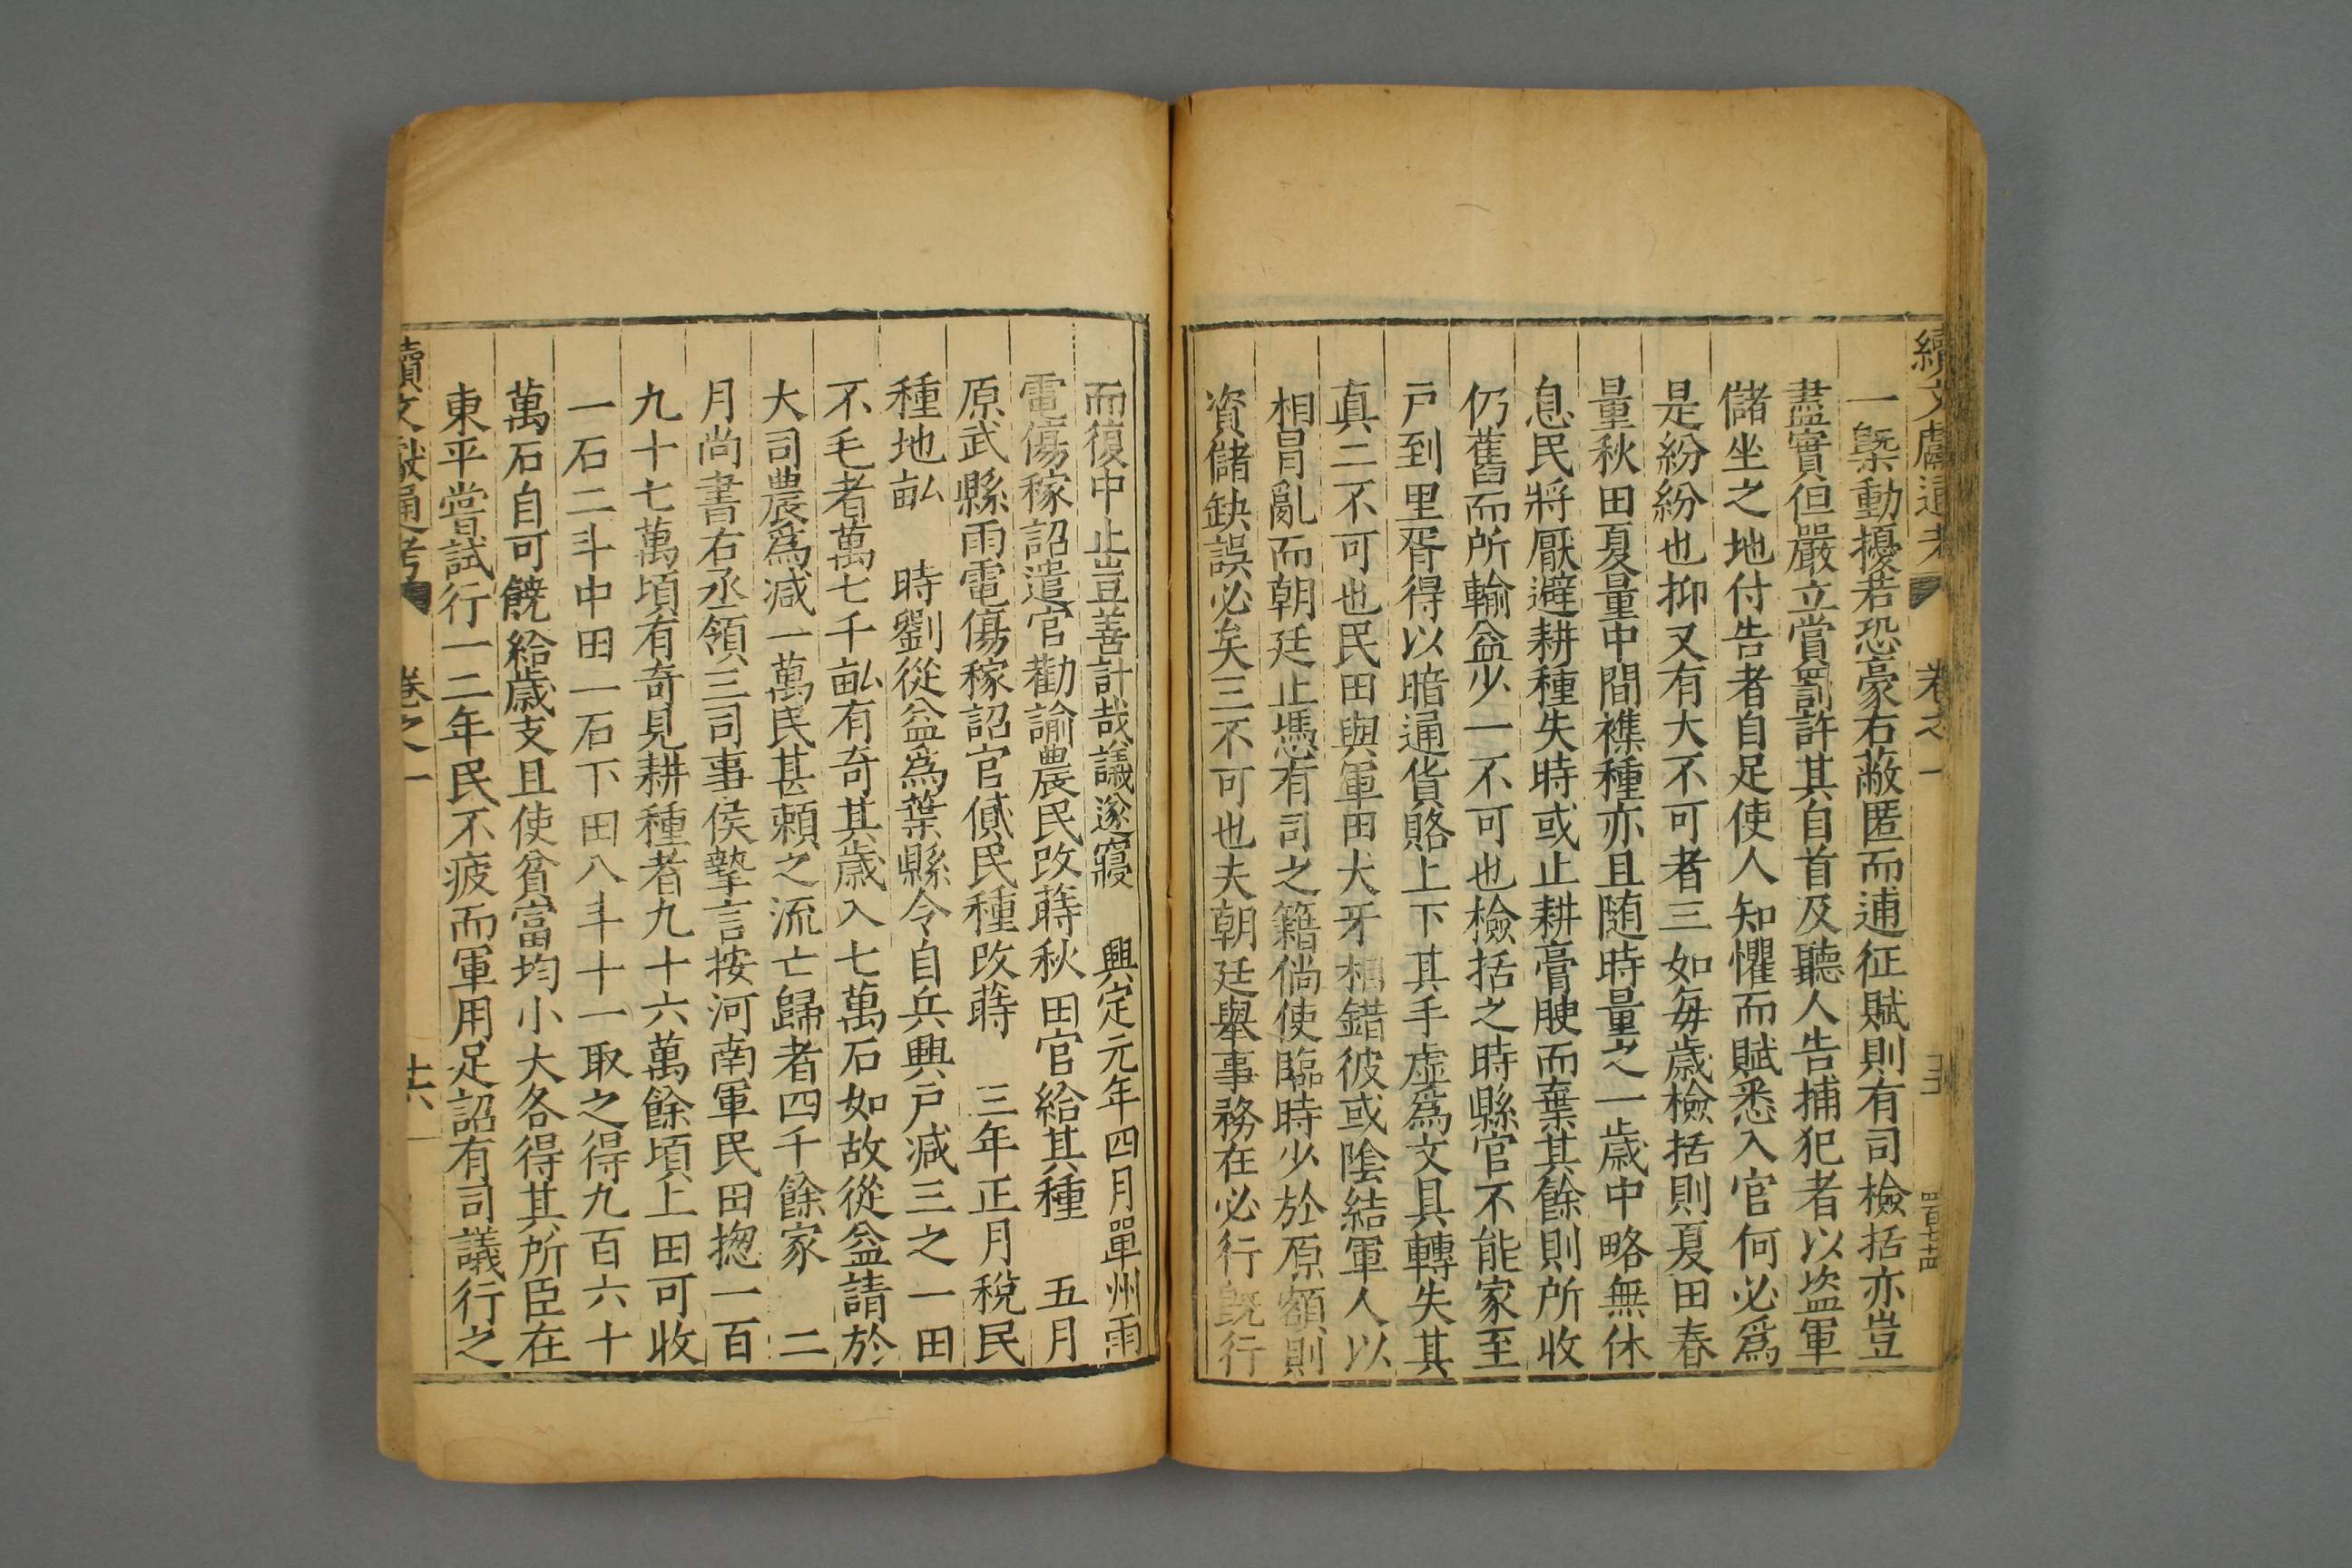 續文獻通考 卷之一
一槩動擾若恐豪右蔽匿而逋征賦則有司檢括亦豈
盡實但嚴立賞罰許其自首及聽人告捕犯者以盜軍
儲坐之地付告者自足使人知懼而賦悉入官何必爲
是紛紛也抑又有大不可者三如每歲檢括則夏田春
量秋田夏量中間襍種亦且随時量之一歲中略無休
息民將厭避耕種失時或止耕膏腴而棄其餘則所收
仍舊而所輸益少一不可也檢括之時縣官不能家至
戸到里胥得以暗通貨賂上下其手虚爲文具轉失其
真二不可也民田與軍田犬牙相錯彼或陰結軍人以
相冒亂而朝廷止憑有司之籍倘使臨時少於原額則
資儲缺誤必矣三不可也夫朝廷舉事務在必行旣行
而復中止豈善計哉議遂寢 興定元年四月單州雨
雹傷稼詔遣官勸諭農民改蒔秋田官給其種 五月
原武縣雨雹傷稼詔官貸民種改蒔 三年正月稅民
種地畝 時劉從益爲葉縣令自兵興戸减三之一田
不毛者萬七千畝有奇其歲入七萬石如故從益請於
大司農爲减一萬民甚頼之流亡歸者四千餘家 二
月尚書右丞領三司事侯摯言按河南軍民田揔一百
九十七萬頃有奇見耕種者九十六萬餘頃上田可收
一石二斗中田一石下田八斗十一取之得九百六十
萬石自可饒給歲支且使貧富均小大各得其所臣在
東平嘗試行一二年民不疲而軍用足詔有司議行之
續文獻通考 卷之一 十六